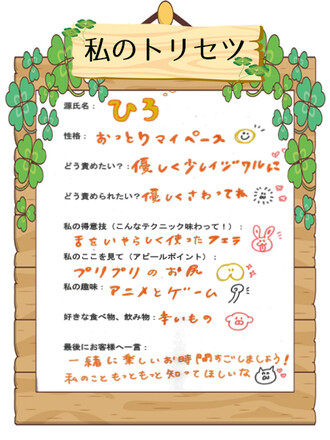 私のトリセツ
源氏名： ひろ
性格： おっとりマイペース
どう責めたい？：優しく少しイジワルに
どう責められたい？優しくさわってね
私の得意技（こんなテクニック味わって！）：
舌をいやらしく使ったフェラ
私のここを見て（アピールポイント）：
プリプリのお尻
私の趣味： アニメとゲーム
好きな食べ物、飲み物：辛いもの
最後にお客様へ一言：
一緒に楽しいお時間すごしましょう！
私のこともっともっと知ってほしいな